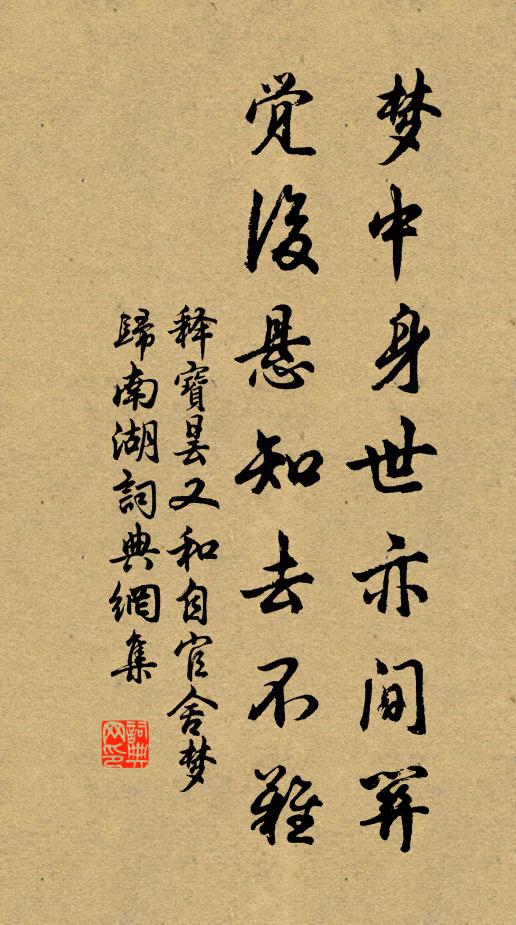 梦中身世亦间关
觉後悬知去不難
释寶昙又和自官舍梦
歸南湖詞典網集
詞典
网印